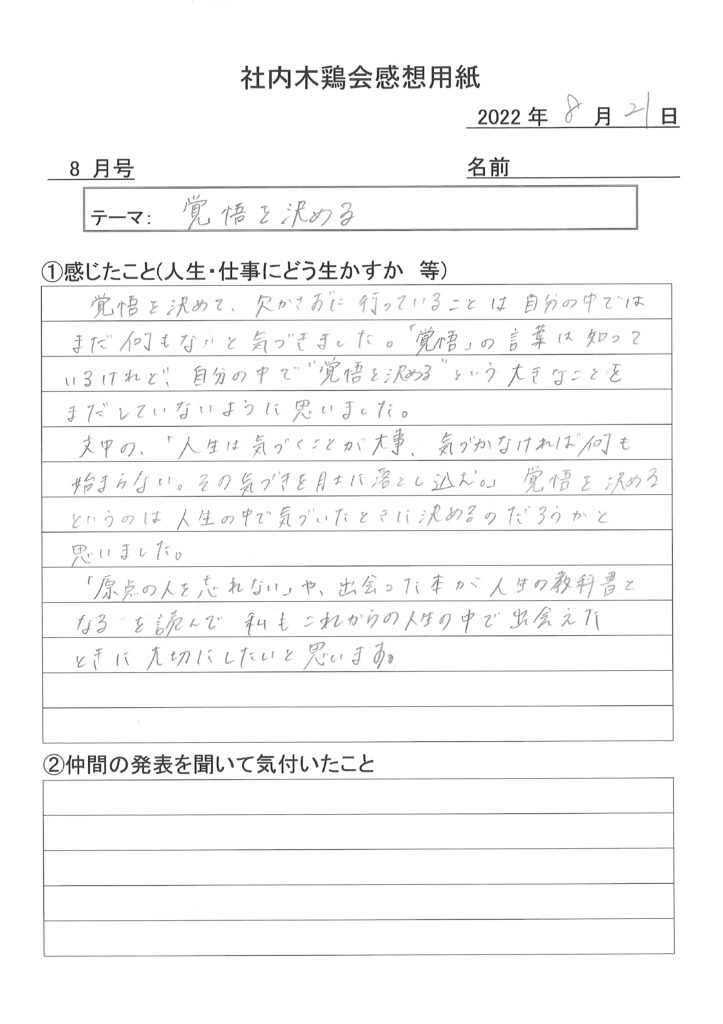 社内木鶏会感想用紙
2022年 8月 21日
8 月号 名前
テーマ: 覚悟を決める
①感じたこと(人生・仕事にどう生かすか 等)
覚悟を決めて、欠かさずに行っていることは自分の中では
まだ何もないと気づきました。「覚悟」の言葉は知って
いるけれど、自分の中で"覚悟を決める"という大きなことを
まだしていないように思いました。
文中の、「人生は気づくことが大事、気づかなければ何も
始まらない。その気づきを肚に落とし込む。」覚悟を決める
というのは人生の中で気づいたときに決めるのだろうかと
思いました。
「原点の人を忘れない」や、出会った本が人生の教科書と
なる を読んで 私もこれからの人生の中で出会えた
ときに大切にしたいと思います。
②仲間の発表を聞いて気付いたこと